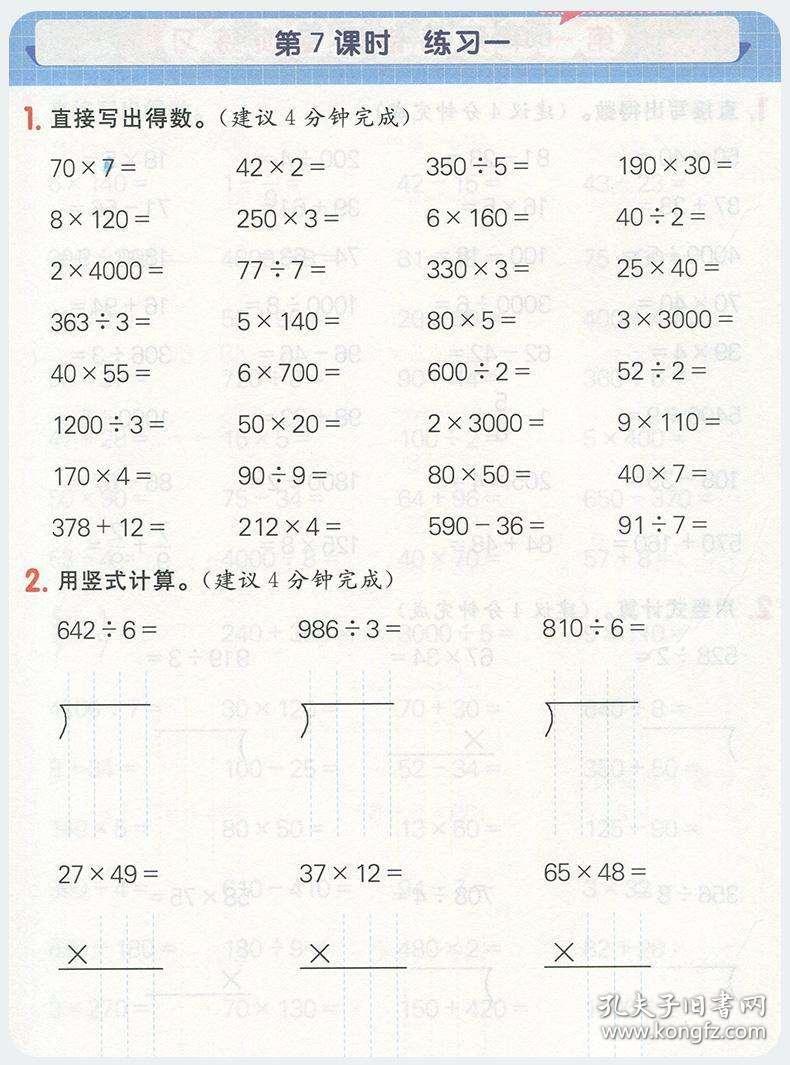 第7课时 练习一
1. 直接写出得数。（建议4分钟完成）
70×7= 42×2= 350÷5= 190×30=
8×120= 250×3= 6×160= 40÷2=
2×4000= 77÷7= 330×3= 25×40=
363÷3= 5×140= 80×5= 3×3000=
40×55= 6×700= 600÷2= 52÷2=
1200÷3= 50×20= 2×3000= 9×110=
170×4= 90÷9= 80×50= 40×7=
378+12= 212×4= 590-36= 91÷7=
2. 用竖式计算。（建议4分钟完成）
642÷6= 986÷3= 810÷6=
27×49= 37×12= 65×48=
× × ×
孔夫子旧书网
www.kongfz.com